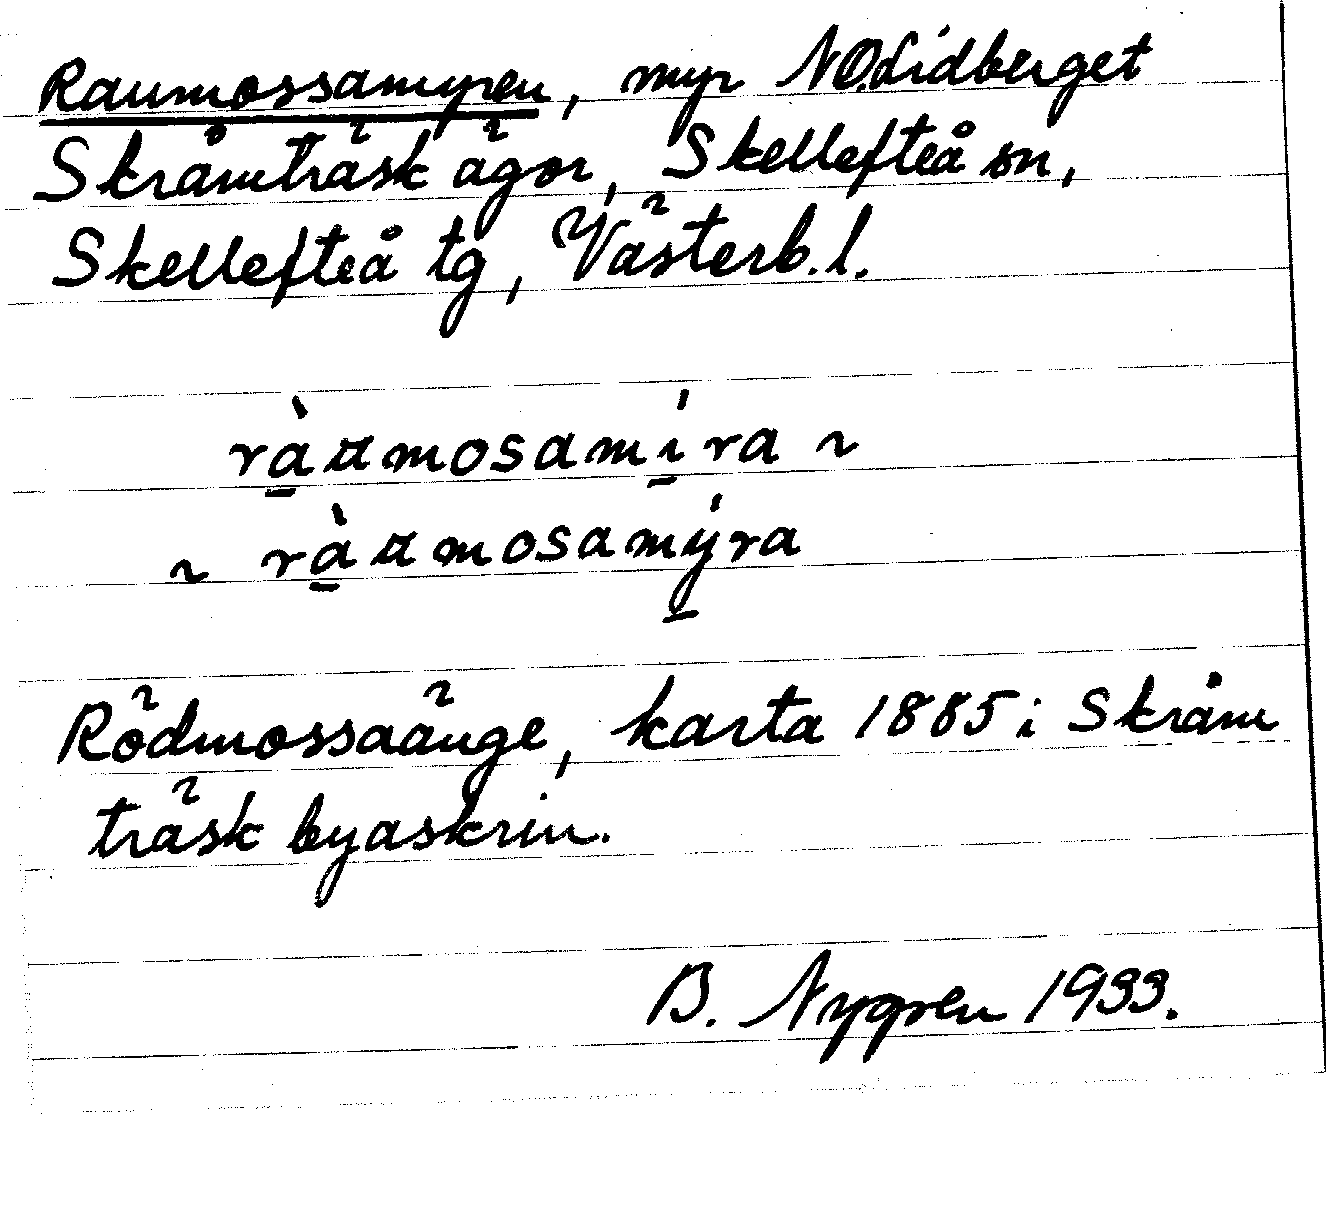 Raumossamyren, myr NO.Lidberget
Skråmträsk ägor, Skellefteå sn,
Skellefteå tg, Västerb.l.
rà̱ꭗmosamí̱ra ~
~ rà̱ꭗmosamý̱ra
Rödmossaänge, karta 1885 i Skråm
träsk byaskrin.
B. Nygren 1933.